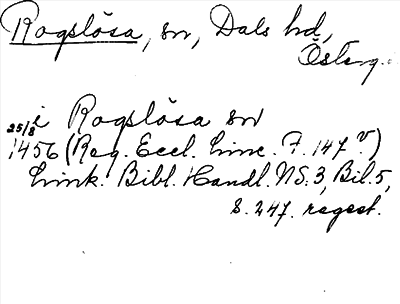 Rogslösa, sn, Dals hd,
Österg.
i Rogslösa sn
25/8 1456 (Reg. Eccl. Linc. F. 147 v)
Link. Bibl. Handl. NS. 3, Bil. 5,
S. 247. regest.